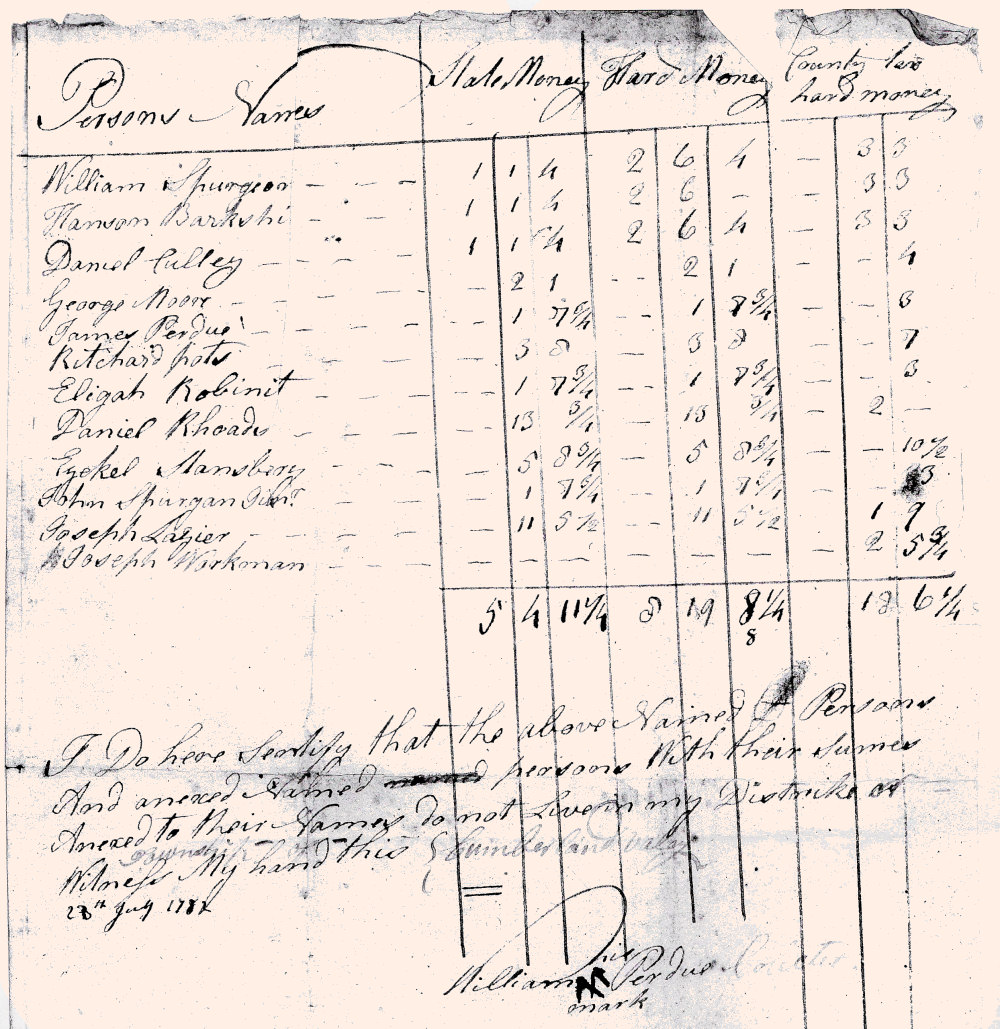 Persons Names State Money Hard Money County tax hard money
William Spurgeon - - - 1 1 4 - 2 6 4 - 3 3
Hanson Barkshi - - - 1 1 4 2 6 - - 3 3
Daniel Culley - - - 1 1 4 2 6 4 - 3 3
George Moore - - - - 2 1 - 2 1 - - 4
James Perdue - - - - 1 7 3/4 - 1 8 3/4 - - 3
Ritchard pots - - - 3 8 - 3 8 - - 7
Eligah Robinit - - - - 1 7 3/4 - - 1 7 3/4 - - 3
Daniel Rhoads - - - - 13 3/4 - 13 3/4 - 2 -
Ezekel Mansbery - - - 5 8 3/4 - - 5 8 3/4 - - 10 1/2
John Spurgan - - - - 1 7 3/4 - 1 7 3/4 - - 3
Joseph Lazier - - - - - 11 5 1/2 - - 11 5 1/2 - 1 9
Joseph Workman - - - - - - - - - - - 2 5 3/4
5 4 11 1/4 8 19 8 1/4 18 6 1/4
8
I Do here Sertify that the above Named Persons
And anexed Named persons With their sumes
Anexed to their Names do not Live in my Distrike or
township Cumberland valey
Witness My hand this
28th July 1782
his
William Perdue
mark